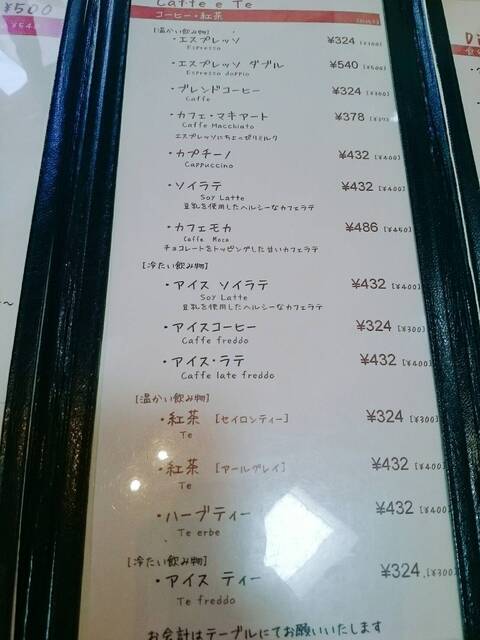 ¥500
¥540
Caffe e Te
コーヒー・紅茶
[温かい飲み物]
・エスプレッソ ¥324 [¥300]
Espresso
・エスプレッソ ダブル ¥540 [¥500]
Espresso doppio
・ブレンドコーヒー ¥324 [¥300]
Caffe
・カフェ・マキアート ¥378
Caffe Macchiato
エスプレッソにちょっぴりミルク
・カプチーノ ¥432 [¥400]
Cappuccino
・ソイラテ ¥432 [¥400]
Soy Latte
豆乳を使用したヘルシーなカフェラテ
・カフェモカ ¥486 [¥450]
Caffe Moca
チョコレートをトッピングした甘いカフェラテ
[冷たい飲み物]
・アイス ソイラテ ¥432 [¥400]
Soy Latte
豆乳を使用したヘルシーなカフェラテ
・アイスコーヒー ¥324 [¥300]
Caffe freddo
・アイス・ラテ ¥432 [¥400]
Caffe late freddo
[温かい飲み物]
・紅茶 [セイロンティー] ¥324 [¥300]
Te
・紅茶 [アールグレイ] ¥432 [¥400]
Te
・ハーブティー ¥432 [¥400]
Te erbe
[冷たい飲み物]
・アイス ティー ¥324 [¥300]
Te freddo
お会計はテーブルにてお願いいたします